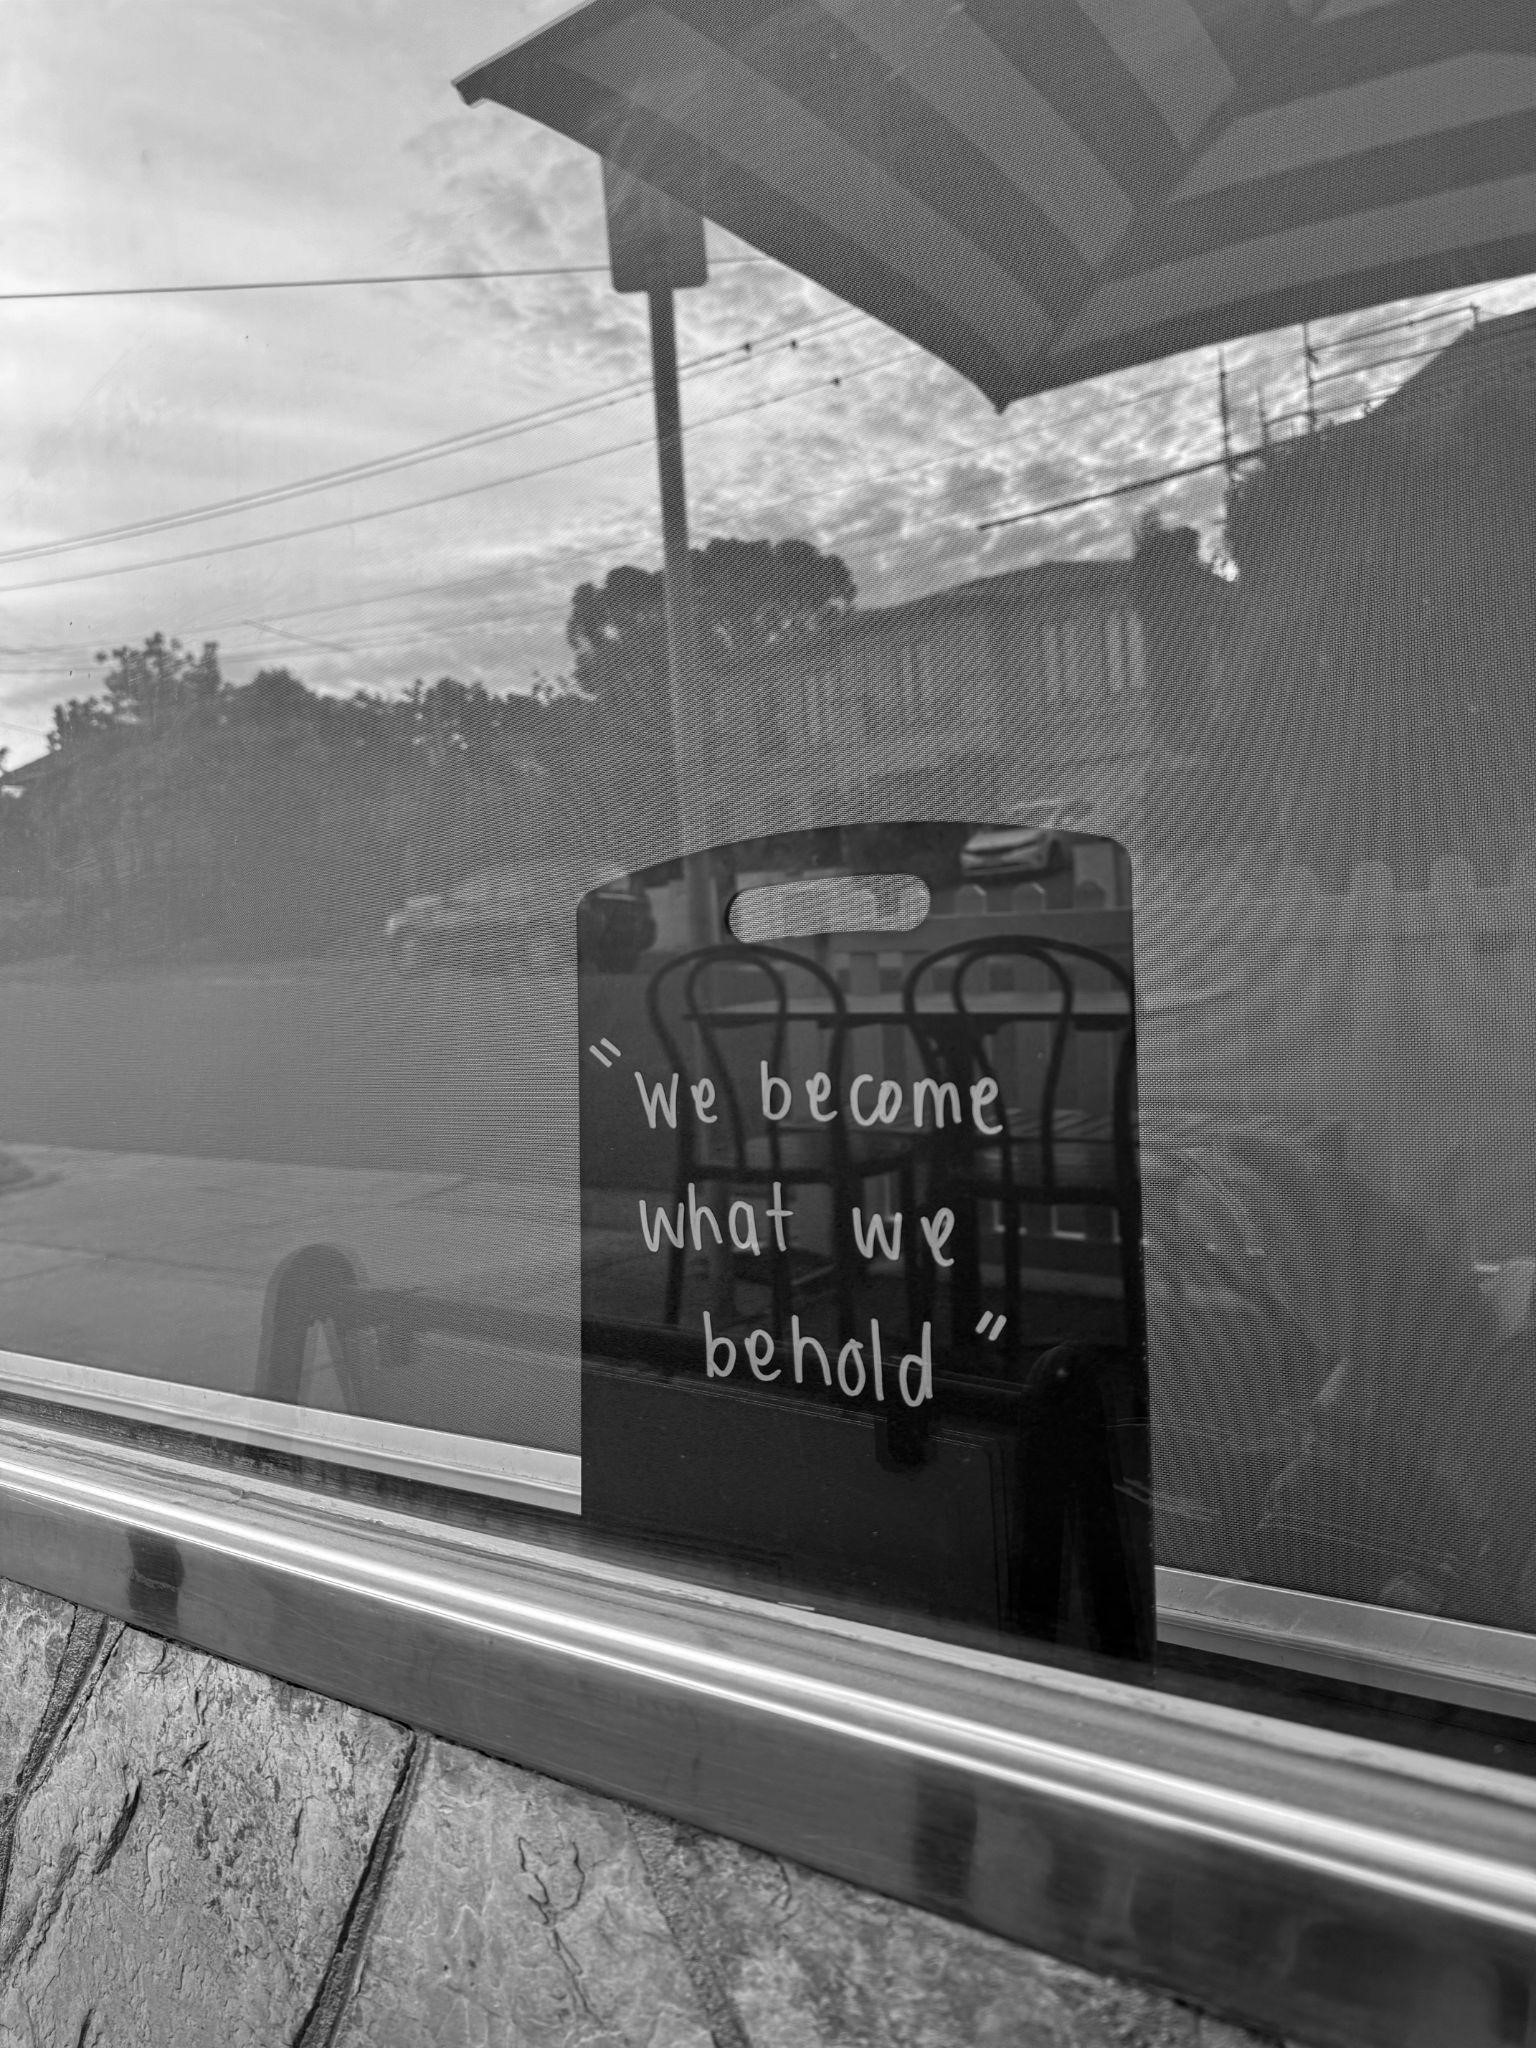 "We become
what we
behold"